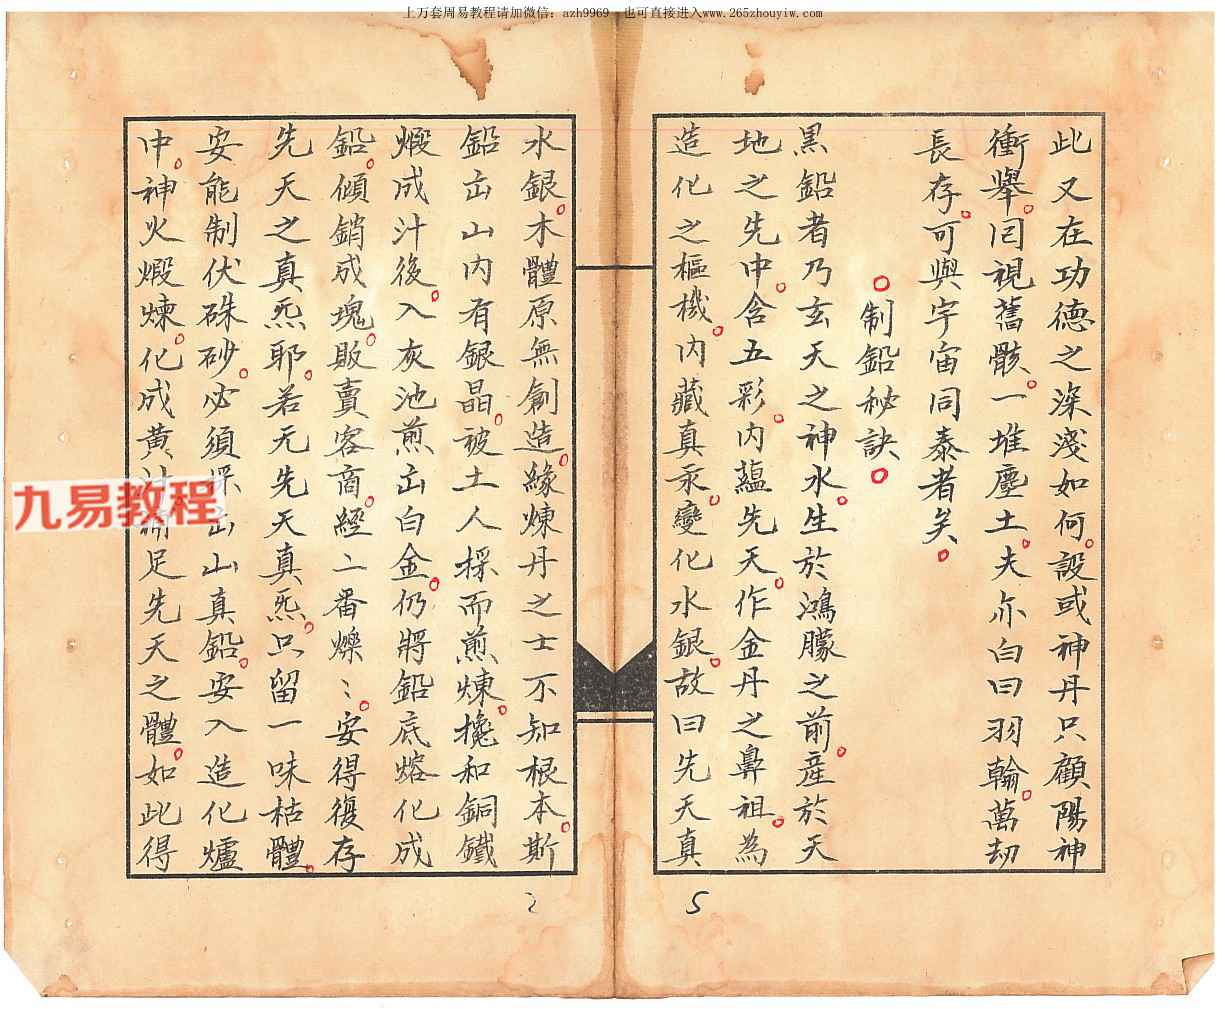 上万套周易教程请加微信：azh9969，也可直接进入www.265zhouyiw.com
此又在功德之深淺如何設或神丹只顧陽神
衝舉回視舊骸一堆塵土夫亦白日羽翰萬劫
長存可與宇宙同泰者矣
制鉛秘訣
黑鉛者乃玄天之神水生於鴻朦之前産於天
地之先中含五彩内蘊先天作金丹之鼻祖為
造化之樞機内藏真汞變化水銀故曰先天真
水銀木體原無創造緣煉丹之士不知根本斯
鉛出山内有銀晶被土人採而煎煉攙和銅鐵
煅成汁後入灰池煎出白金仍將鉛底熔化成
鉛傾銷成塊販賣客商經二番爍〻安得復存
先天之真炁耶若无先天真炁只留一味枯體
安能制伏硃砂必須採出山真鉛安入造化爐
中神火煅煉化成黄汁足先天之體如此得
5
2
九易教程